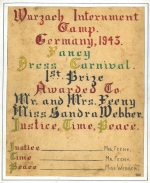 Wurzach Internment
Camp.
Germany, 1943.
Fancy
Dress Carnival.
1st Prize
Awarded To
Mr. and Mrs. Feeny
Miss Sandra Webber.
Justice, Time, Peace.
Justice Mr. Feeny.
Time Mrs. Feeny.
Peace Miss Webber.